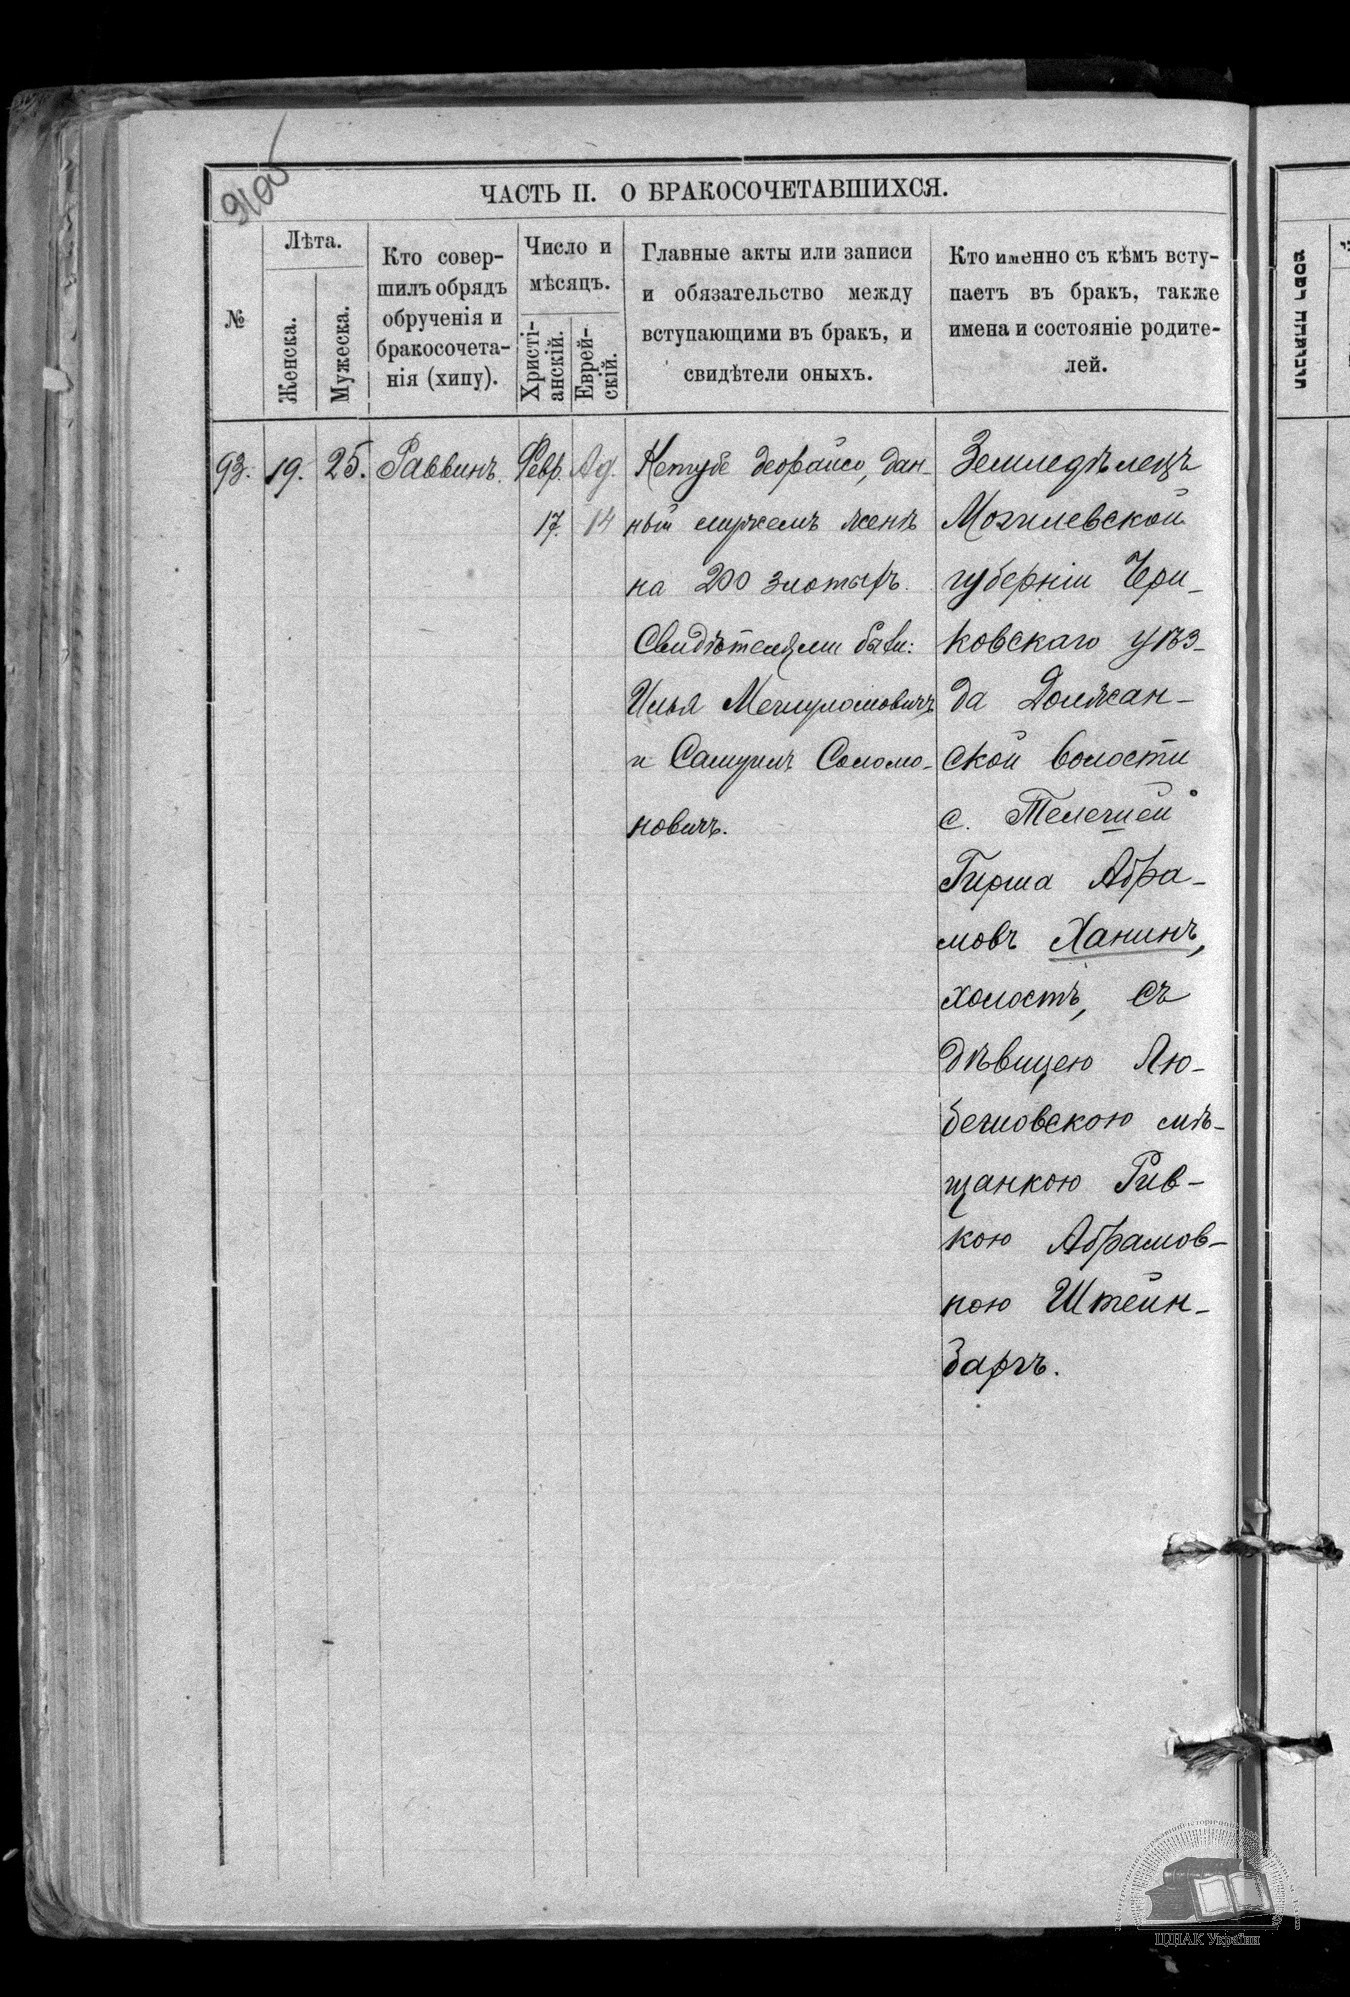 91об
ЧАСТЬ II. О БРАКОСОЧЕТАВШИХСЯ.
№
Лѣта.
Женска.
Мужеска.
Кто совер-
шилъ обрядъ
обрученія и
бракосочета-
нія (хипу).
Число и
мѣсяцъ.
Христі-
анскій.
Еврей-
скій.
Главные акты или записи
и обязательство между
вступающими въ бракъ, и
свидѣтели оныхъ.
Кто именно съ кѣмъ всту-
паетъ въ бракъ, также
имена и состояніе родите-
лей.
93.
19.
25.
Раввинъ.
Февр.
17.
Ад.
14
Кетубе деорайсо, дан-
ный мужемъ женѣ
на 200 злотыхъ.
Свидѣтелями были:
Илья Мешуломовичъ
и Самуилъ Соломо-
новичъ.
Земледѣлецъ
Могилевской
губерніи Чери-
ковскаго уѣз-
да Должан-
ской волости
с.
Гирша Абра-
мовъ Ханинъ,
холостъ, съ
дѣвицею Лю-
бешовскою мѣ-
щанкою Рив-
кою Абрамов-
ною Штейн-
баргъ.
ЦДІАК України